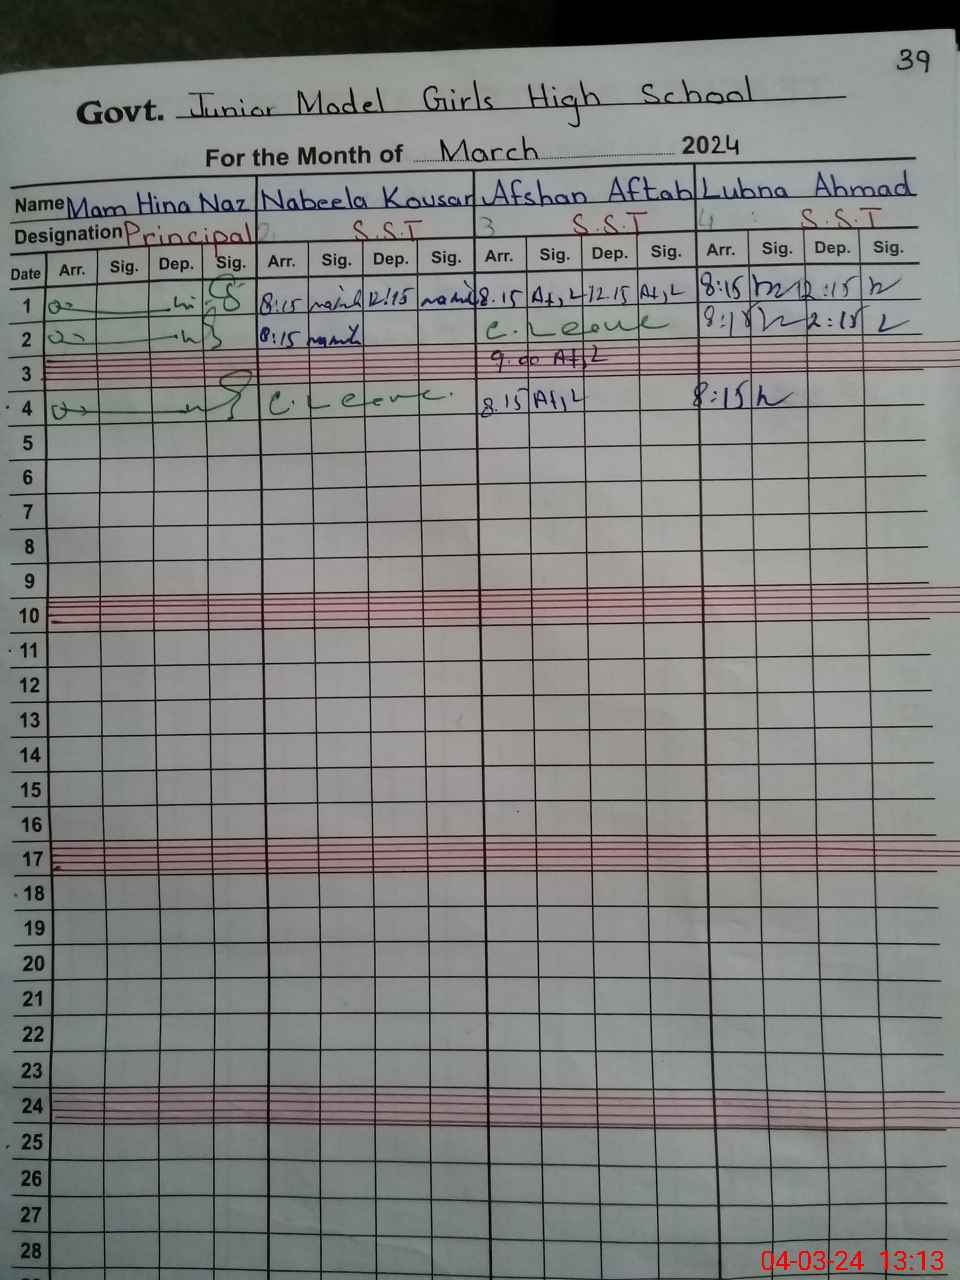 39
Govt. Junior Model Girls High School
For the Month of March 2024
Name Mam Hina Naz Nabeela Kousar Afshan Aftab Lubna Ahmad
Designation Principal 2 S.S.T 3 S.S.T 4 S.S.T
Date Arr. Sig. Dep. Sig. Arr. Sig. Dep. Sig. Arr. Sig. Dep. Sig. Arr. Sig. Dep. Sig.
1 8:15 12:15 8.15 12.15 8:15 12:15
2 8:15 C. Leave 8:15 2:15
3 9.00
4 C. Leave. 8.15 8:15
5
6
7
8
9
10
11
12
13
14
15
16
17
18
19
20
21
22
23
24
25
26
27
28
04-03-24 13:13